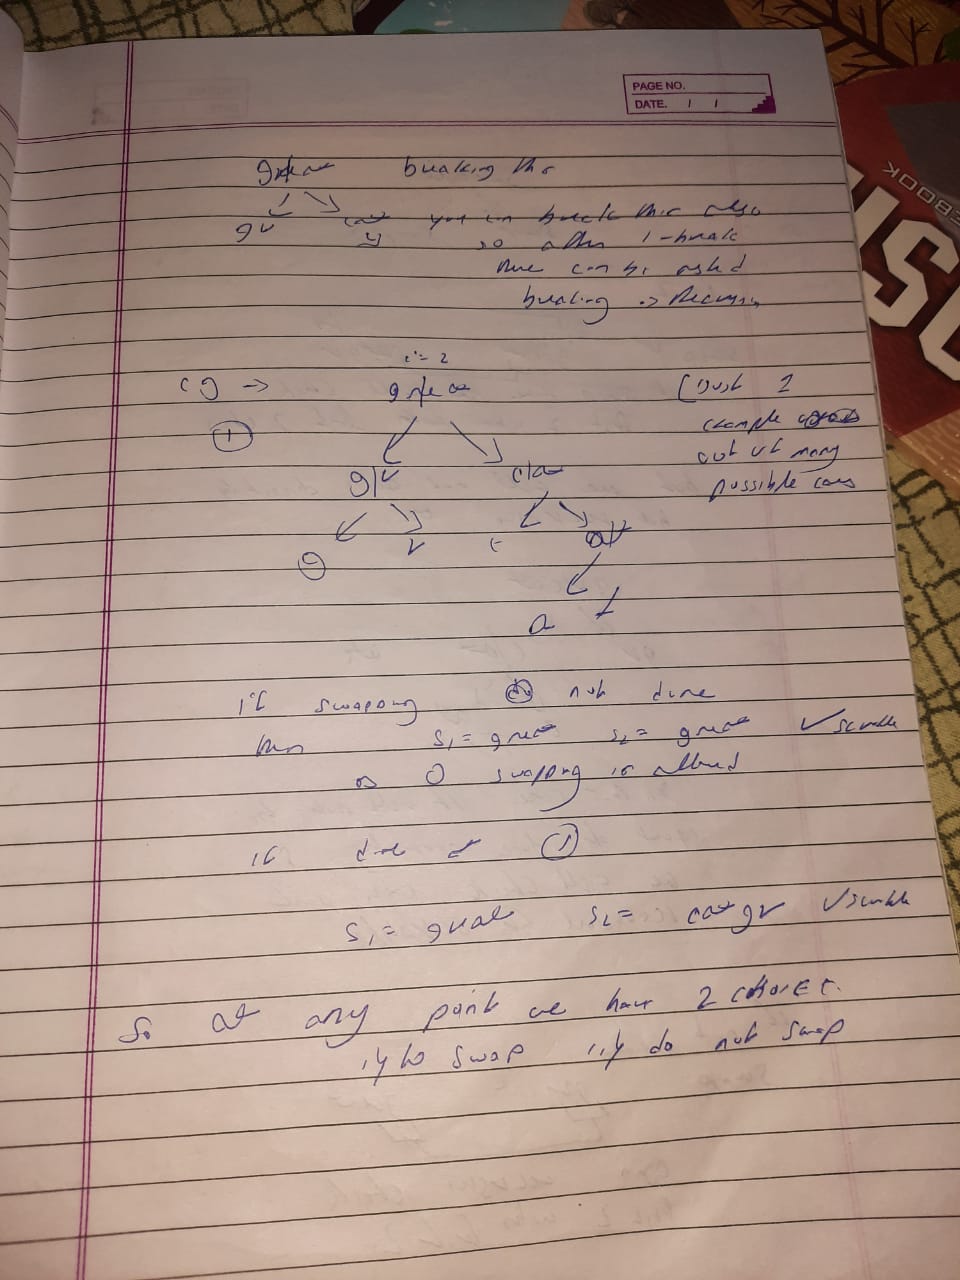 PAGE NO.
DATE. / /
gr/eat breaking this
gr eat you can break this also
so after 1-break
there can be asked
breaking -> Recursion
i = 2
eg -> gr/eat [Just 1
example
out of many
possible cases
①
g|r e|at
g r e a|t
a t
if swapping not done
then S1 = great S2 = great ✓ scramble
as 0 swapping is allowed
if done at ①
S1 = great S2 = eatgr ✓ scramble
So at any point we have 2 choices.
i) to swap ii) do not swap
OSH
NOTEBOOK